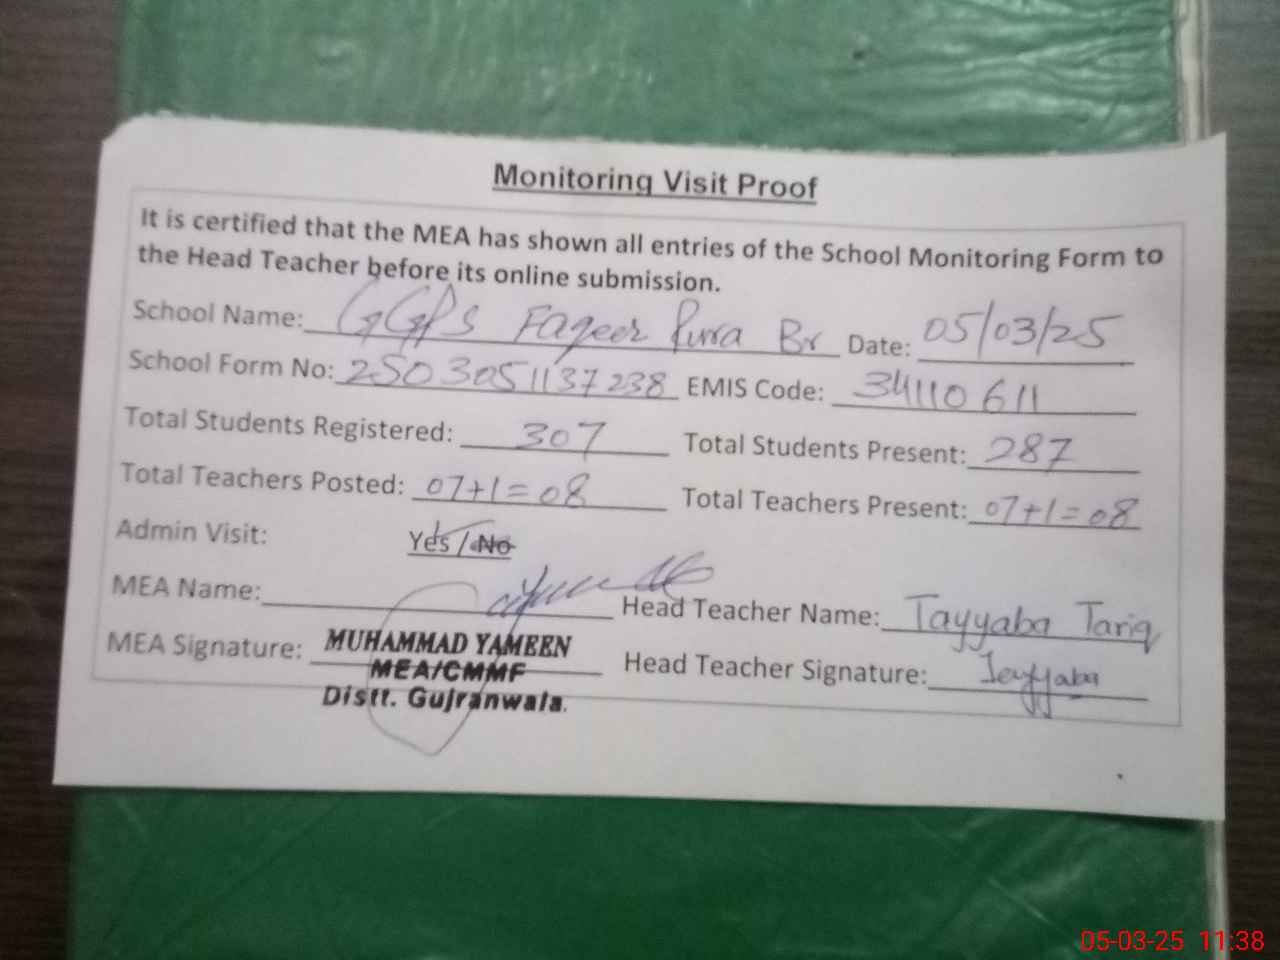 Monitoring Visit Proof
It is certified that the MEA has shown all entries of the School Monitoring Form to
the Head Teacher before its online submission.
School Name: GGPS Faqeer Pura Br Date: 05/03/25
School Form No: 2503051137238 EMIS Code: 34110611
Total Students Registered: 307 Total Students Present: 287
Total Teachers Posted: 07+1=08 Total Teachers Present: 07+1=08
Admin Visit: Yes / No
MEA Name: Head Teacher Name: Tayyaba Tariq
MEA Signature: MUHAMMAD YAMEEN Head Teacher Signature: Tayyaba
MEA/CMMF
Distt. Gujranwala.
05-03-25 11:38